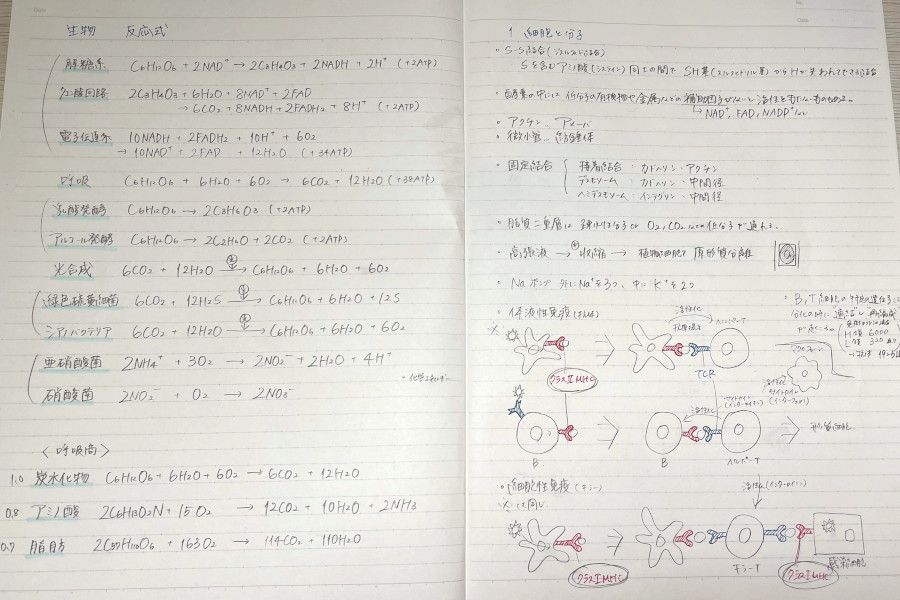 生物 反応式
解糖系 C₆H₁₂O₆ + 2NAD⁺ → 2C₃H₄O₃ + 2NADH + 2H⁺ (+2ATP)
クエン酸回路 2C₃H₄O₃ + 6H₂O + 8NAD⁺ + 2FAD
→ 6CO₂ + 8NADH + 2FADH₂ + 8H⁺ (+2ATP)
電子伝達系 10NADH + 2FADH₂ + 10H⁺ + 6O₂
→ 10NAD⁺ + 2FAD + 12H₂O (+34ATP)
呼吸 C₆H₁₂O₆ + 6H₂O + 6O₂ → 6CO₂ + 12H₂O (+38ATP)
乳酸発酵 C₆H₁₂O₆ → 2C₃H₆O₃ (+2ATP)
アルコール発酵 C₆H₁₂O₆ → 2C₂H₆O + 2CO₂ (+2ATP)
光合成 6CO₂ + 12H₂O → C₆H₁₂O₆ + 6H₂O + 6O₂
緑色硫黄細菌 6CO₂ + 12H₂S → C₆H₁₂O₆ + 6H₂O + 12S
シアノバクテリア 6CO₂ + 12H₂O → C₆H₁₂O₆ + 6H₂O + 6O₂
亜硝酸菌 2NH₄⁺ + 3O₂ → 2NO₂⁻ + 2H₂O + 4H⁺
・化学エネルギー
硝酸菌 2NO₂⁻ + O₂ → 2NO₃⁻
〈呼吸商〉
1.0 炭水化物 C₆H₁₂O₆ + 6H₂O + 6O₂ → 6CO₂ + 12H₂O
0.8 アミノ酸 2C₆H₁₃O₂N + 15O₂ → 12CO₂ + 10H₂O + 2NH₃
0.7 脂肪 2C₅₇H₁₁₀O₆ + 163O₂ → 114CO₂ + 110H₂O
1 細胞と分子
・S-S結合(ジスルフィド結合)
Sを含むアミノ酸(システイン)同士の間で SH基(スルフヒドリル基)からHが失われてできる結合
・酵素の中には 低分子の有機物や金属などの補助因子がないと活性をもたないものもある。
→ NAD⁺, FAD, NADP⁺など
・アクチン
・微小管
・固定結合 接着結合・カドヘリン・アクチン
デスモソーム・カドヘリン・中間径
ヘミデスモソーム・インテグリン・中間径
・脂質二重層は 疎水性分子や O₂, CO₂などの低分子が通れる。
・高張液 → 収縮 → 植物細胞で原形質分離
・Naポンプ 外にNa⁺を3つ、中にK⁺を2つ
・体液性免疫
・B, T細胞の
活性化
抗原提示
ヘルパーT
TCR
マクロファージ
クラスⅡMHC
活性化
サイトカイン
(インターロイキン)
活性化
B
B
ヘルパーT
形質細胞
・細胞性免疫(キラー)
※は同じ
活性化(インターロイキン)
キラーT
感染細胞
クラスⅠMHC
クラスⅠMHC